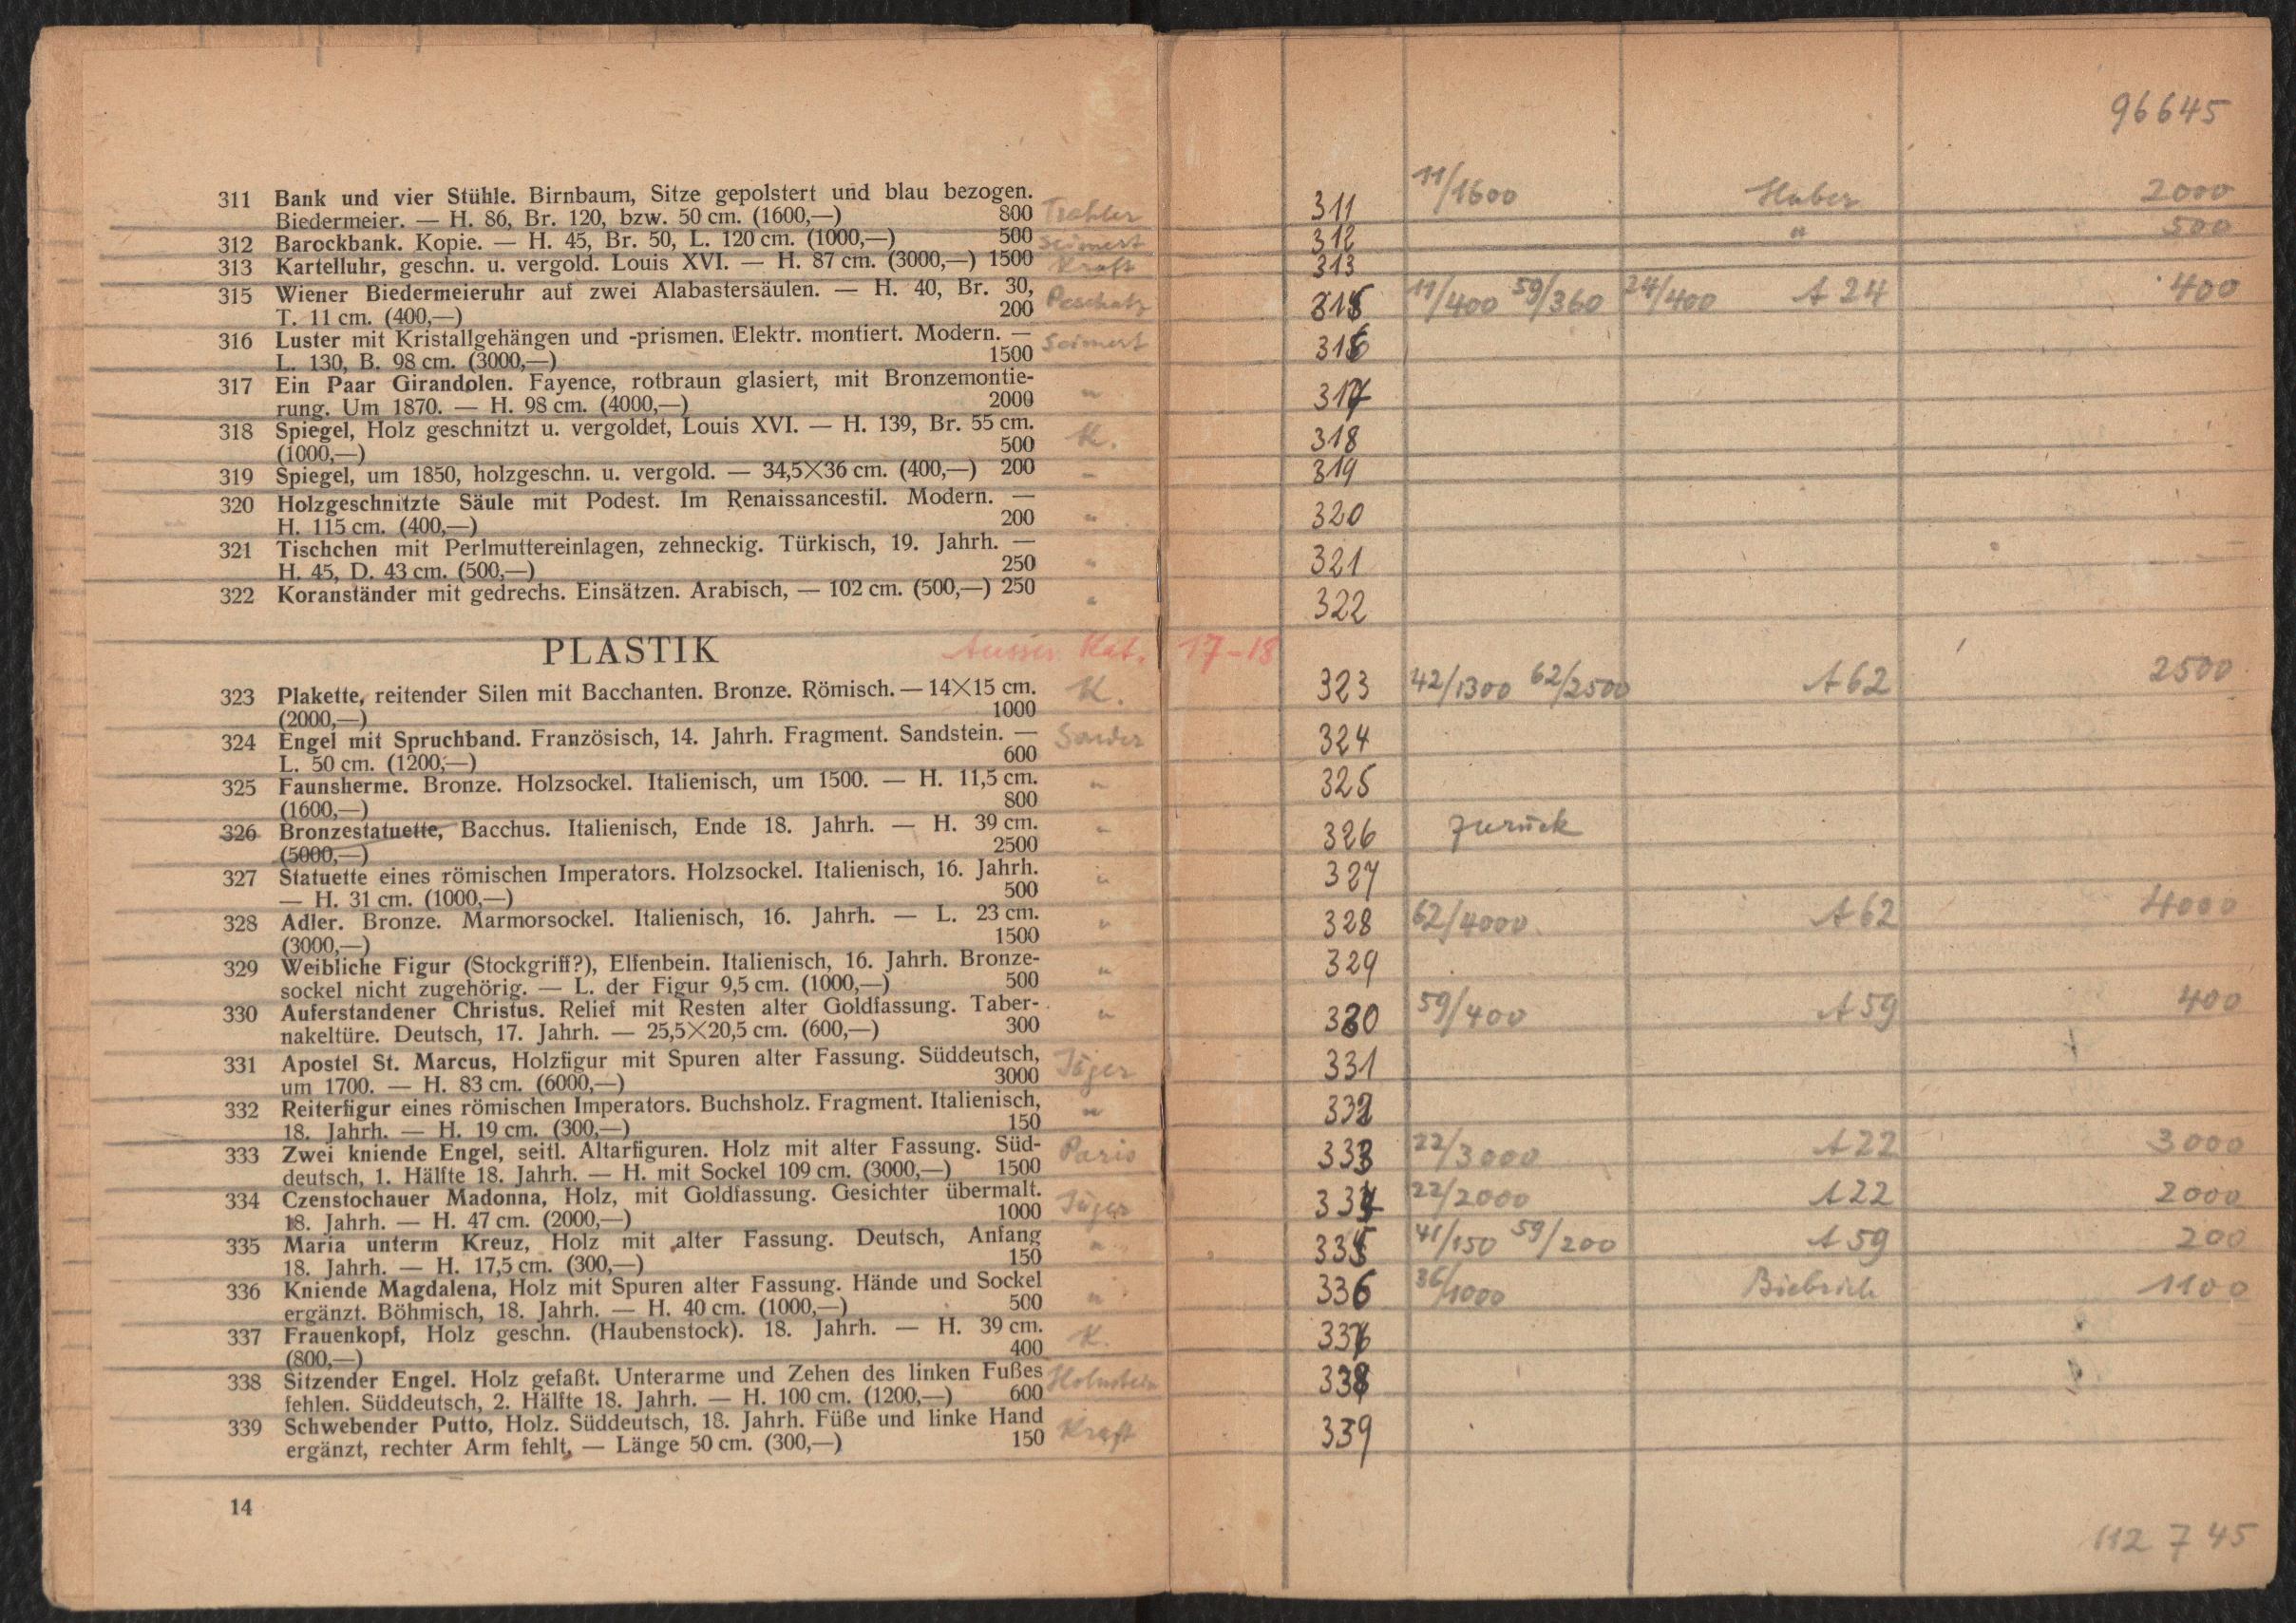 311 Bank und vier Stühle. Birnbaum, Sitze gepolstert und blau bezogen.
Biedermeier. — H. 86, Br. 120, bzw. 50 cm. (1600,—) 800
312 Barockbank. Kopie. — H. 45, Br. 50, L. 120 cm. (1000,—) 500 Seimert
313 Kartelluhr, geschn. u. vergold. Louis XVI. — H. 87 cm. (3000,—) 1500 Kraft
315 Wiener Biedermeieruhr auf zwei Alabastersäulen. — H. 40, Br. 30,
T. 11 cm. (400,—) 200
316 Luster mit Kristallgehängen und -prismen. Elektr. montiert. Modern. — Seimert
L. 130, B. 98 cm. (3000,—) 1500
317 Ein Paar Girandolen. Fayence, rotbraun glasiert, mit Bronzemontie-
rung. Um 1870. — H. 98 cm. (4000,—) 2000 "
318 Spiegel, Holz geschnitzt u. vergoldet, Louis XVI. — H. 139, Br. 55 cm.
(1000,—) 500 K.
319 Spiegel, um 1850, holzgeschn. u. vergold. — 34,5×36 cm. (400,—) 200 "
320 Holzgeschnitzte Säule mit Podest. Im Renaissancestil. Modern. —
H. 115 cm. (400,—) 200 "
321 Tischchen mit Perlmuttereinlagen, zehneckig. Türkisch, 19. Jahrh. —
H. 45, D. 43 cm. (500,—) 250 "
322 Koranständer mit gedrechs. Einsätzen. Arabisch, — 102 cm. (500,—) 250 "
PLASTIK Ausser Kat. 17-18
323 Plakette, reitender Silen mit Bacchanten. Bronze. Römisch. — 14×15 cm. K.
(2000,—) 1000
324 Engel mit Spruchband. Französisch, 14. Jahrh. Fragment. Sandstein. —
L. 50 cm. (1200,—) 600
325 Faunsherme. Bronze. Holzsockel. Italienisch, um 1500. — H. 11,5 cm. "
(1600,—) 800
326 Bronzestatuette, Bacchus. Italienisch, Ende 18. Jahrh. — H. 39 cm. "
(5000,—) 2500
327 Statuette eines römischen Imperators. Holzsockel. Italienisch, 16. Jahrh. "
— H. 31 cm. (1000,—) 500
328 Adler. Bronze. Marmorsockel. Italienisch, 16. Jahrh. — L. 23 cm. "
(3000,—) 1500
329 Weibliche Figur (Stockgriff?), Elfenbein. Italienisch, 16. Jahrh. Bronze- "
sockel nicht zugehörig. — L. der Figur 9,5 cm. (1000,—) 500
330 Auferstandener Christus. Relief mit Resten alter Goldfassung. Taber- "
nakeltüre. Deutsch, 17. Jahrh. — 25,5×20,5 cm. (600,—) 300
331 Apostel St. Marcus, Holzfigur mit Spuren alter Fassung. Süddeutsch, Jäger
um 1700. — H. 83 cm. (6000,—) 3000
332 Reiterfigur eines römischen Imperators. Buchsholz. Fragment. Italienisch, "
18. Jahrh. — H. 19 cm. (300,—) 150
333 Zwei kniende Engel, seitl. Altarfiguren. Holz mit alter Fassung. Süd- Paris
deutsch, 1. Hälfte 18. Jahrh. — H. mit Sockel 109 cm. (3000,—) 1500
334 Czenstochauer Madonna, Holz, mit Goldfassung. Gesichter übermalt. Jäger
18. Jahrh. — H. 47 cm. (2000,—) 1000
335 Maria unterm Kreuz, Holz mit alter Fassung. Deutsch, Anfang "
18. Jahrh. — H. 17,5 cm. (300,—) 150
336 Kniende Magdalena, Holz mit Spuren alter Fassung. Hände und Sockel "
ergänzt. Böhmisch, 18. Jahrh. — H. 40 cm. (1000,—) 500
337 Frauenkopf, Holz geschn. (Haubenstock). 18. Jahrh. — H. 39 cm. K.
(800,—) 400
338 Sitzender Engel. Holz gefaßt. Unterarme und Zehen des linken Fußes
fehlen. Süddeutsch, 2. Hälfte 18. Jahrh. — H. 100 cm. (1200,—) 600
339 Schwebender Putto, Holz. Süddeutsch, 18. Jahrh. Füße und linke Hand Kraft
ergänzt, rechter Arm fehlt, — Länge 50 cm. (300,—) 150
14
96645
311 11/1600 Huber 2000
312 " 500
313
315 11/400 59/360 24/400 A 24 400
316
317
318
319
320
321
322
323 42/1300 62/2500 A 62 2500
324
325
326 zurück
327
328 62/4000 A 62 4000
329
330 59/400 A 59 400
331
332
333 22/3000 A 22 3000
334 22/2000 A 22 2000
335 41/150 59/200 A 59 200
336 36/1000 Biebrich 1100
337
338
339
112 745